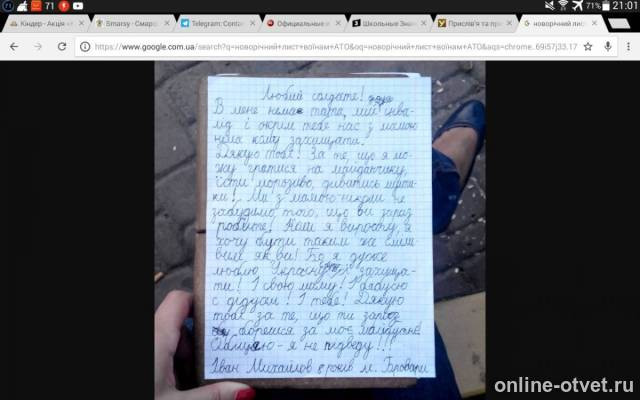 71
71%
21:01
Кіндер - Акція
Smarsy - Смар
Telegram: Conta
Официальные
Школьные Зна
Прислів'я та пр
новорічний лис
https://www.google.com.ua/search?q=новорічний+лист+воїнам+АТО&oq=новорічний+лист+воїнам+АТО&aqs=chrome..69i57j33.17
Любий солдате!
В мене нема тата, мій інва-
лід і окрім тебе нас з мамою
нема кому захищати.
Дякую тобі! За те, що я мо-
жу гратися на майданчику,
їсти морозиво, дивитись мульти-
ки! Ми з мамою ніколи не
забудимо того, що ви зараз
робите! Коли я виросту, я
хочу бути таким же сміли-
вим як ви! Бо я дуже
люблю Україну захища-
ти! І свою маму! І бабусю
с дідусем! І тебе! Дякую
тобі за те, що ти зараз
борешся за моє майбутнє!
Обіцяю - я не підведу!!!
Іван Михайлов років м. Бровари
online-otvet.ru